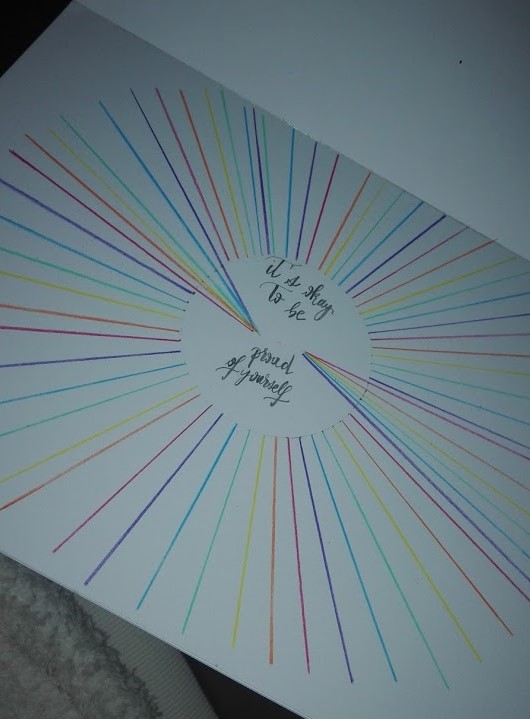 it is okay
to be
proud
of yourself